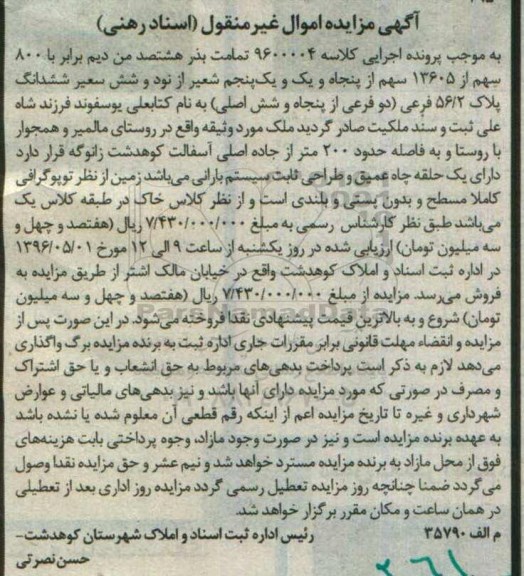 آگهی مزایده اموال غیر منقول (اسناد رهنی)
به موجب پرونده اجرایی کلاسه ۹۶۰۰۰۰۴ تمامت بذر هشتصد من دیم برابر با ۸۰۰
سهم از ۱۳۶۰۵ سهم از پنجاه و یک و یک‌پنجم شعیر از نود و شش سعیر ششدانگ
پلاک ۵۶/۲ فرعی (دو فرعی از پنجاه و شش اصلی) به نام کتابعلی یوسفوند فرزند شاه
علی ثبت و سند ملکیت صادر گردید ملک مورد وثیقه واقع در روستای مالمیر و همجوار
با روستا و به فاصله حدود ۲۰۰ متر از جاده اصلی آسفالت کوهدشت زانوگه قرار دارد
دارای یک حلقه چاه عمیق و طراحی ثابت سیستم بارانی می‌باشد زمین از نظر توپوگرافی
کاملا مسطح و بدون پستی و بلندی است و از نظر کلاس خاک در طبقه کلاس یک
می‌باشد طبق نظر کارشناس رسمی به مبلغ ۷/۴۳۰/۰۰۰/۰۰۰ ریال (هفتصد و چهل و
سه میلیون تومان) ارزیابی شده در روز یکشنبه از ساعت ۹ الی ۱۲ مورخ ۱۳۹۶/۰۵/۰۱
در اداره ثبت اسناد و املاک کوهدشت واقع در خیابان مالک اشتر از طریق مزایده به
فروش می‌رسد. مزایده از مبلغ ۷/۴۳۰/۰۰۰/۰۰۰ ریال (هفتصد و چهل و سه میلیون
تومان) شروع و به بالاترین قیمت پیشنهادی نقدا فروخته می‌شود. در این صورت پس از
مزایده و انقضاء مهلت قانونی برابر مقررات جاری اداره ثبت به برنده مزایده برگ واگذاری
می‌دهد لازم به ذکر است پرداخت بدهی‌های مربوط به حق انشعاب و یا حق اشتراک
و مصرف در صورتی که مورد مزایده دارای آنها باشد و نیز بدهی‌های مالیاتی و عوارض
شهرداری و غیره تا تاریخ مزایده اعم از اینکه رقم قطعی آن معلوم شده یا نشده باشد
به عهده برنده مزایده است و نیز در صورت وجود مازاد، وجوه پرداختی بابت هزینه‌های
فوق از محل مازاد به برنده مزایده مسترد خواهد شد و نیم عشر و حق مزایده نقدا وصول
می‌گردد ضمنا چنانچه روز مزایده تعطیل رسمی گردد مزایده روز اداری بعد از تعطیلی
در همان ساعت و مکان مقرر برگزار خواهد شد.
م الف ۳۵۷۹۰ رئیس اداره ثبت اسناد و املاک شهرستان کوهدشت-
حسن نصرتی
۲۶۱